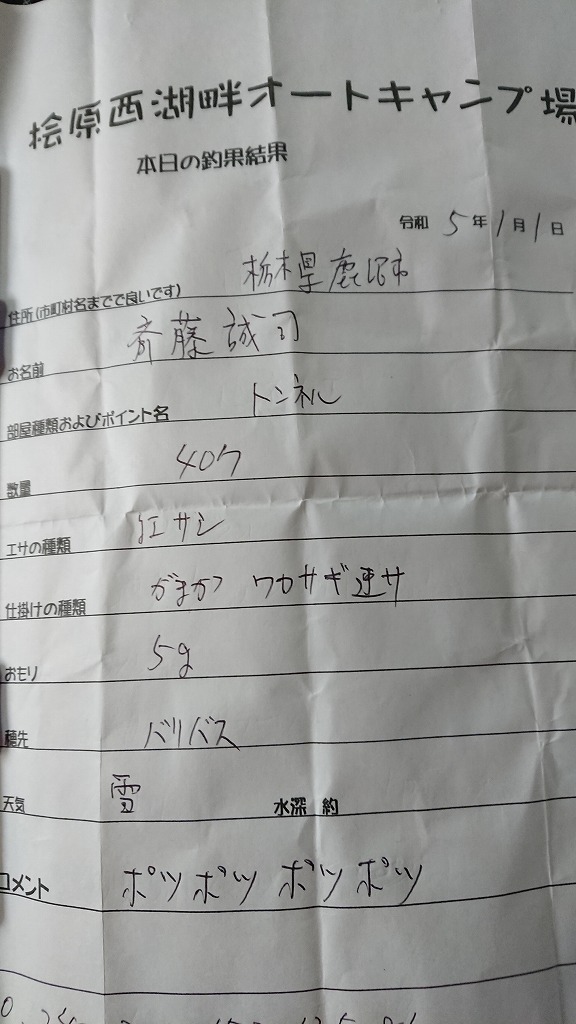 桧原西湖畔オートキャンプ場
本日の釣果結果
令和 5年1月1日
住所(市町村名までで良いです) 栃木県鹿沼市
お名前 斉藤誠司
部屋種類およびポイント名 トンネル
数量 407
エサの種類 紅サシ
仕掛けの種類 がまかつ ワカサギ連サ
おもり 5g
穂先 バリバス
天気 雪 水深 約
コメント ポツポツポツポツ